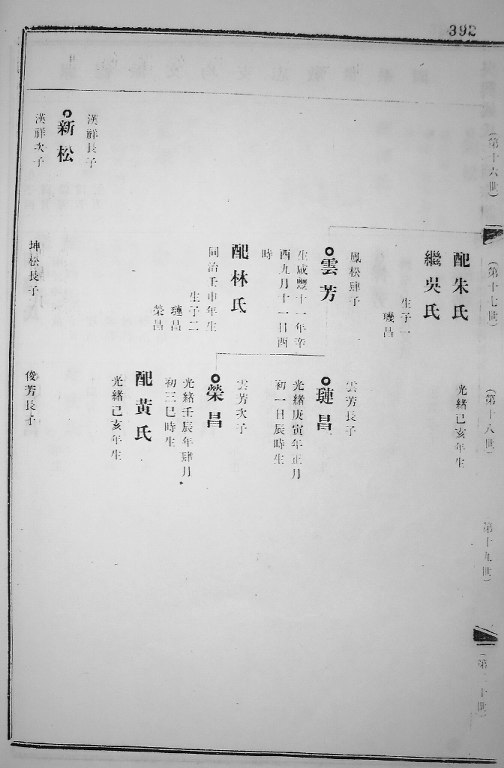 392
(第十六世)
漢祥長子
新松
漢祥次子
(第十七世)
配朱氏
繼吳氏
生子一
璣昌
鳳松肆子
雲芳
生咸豐十一年辛
酉九月十一日酉
時
配林氏
同治壬申年生
生子二
璉昌
榮昌
坤松長子
(第十八世)
光緒己亥年生
雲芳長子
璉昌
光緒庚寅年正月
初一日辰時生
雲芳次子
榮昌
光緒壬辰年肆月
初三巳時生
配黃氏
光緒己亥年生
俊芳長子
第十九世)
(第二十世)